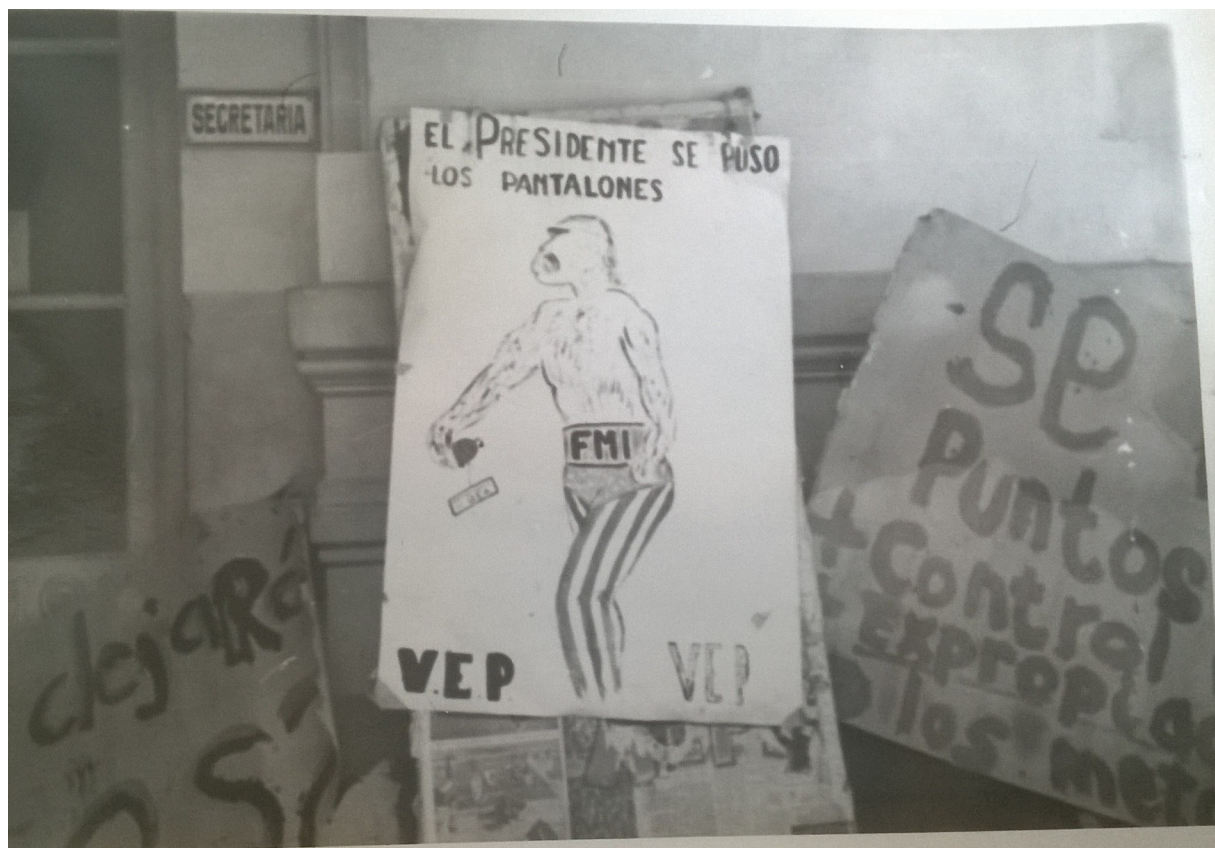 SECRETARIA
EL PRESIDENTE SE PUSO
LOS PANTALONES
FMI
V.E.P
V.E.P
dejaRá
SE
Puntos
+ Control
+ EXpropiac
los